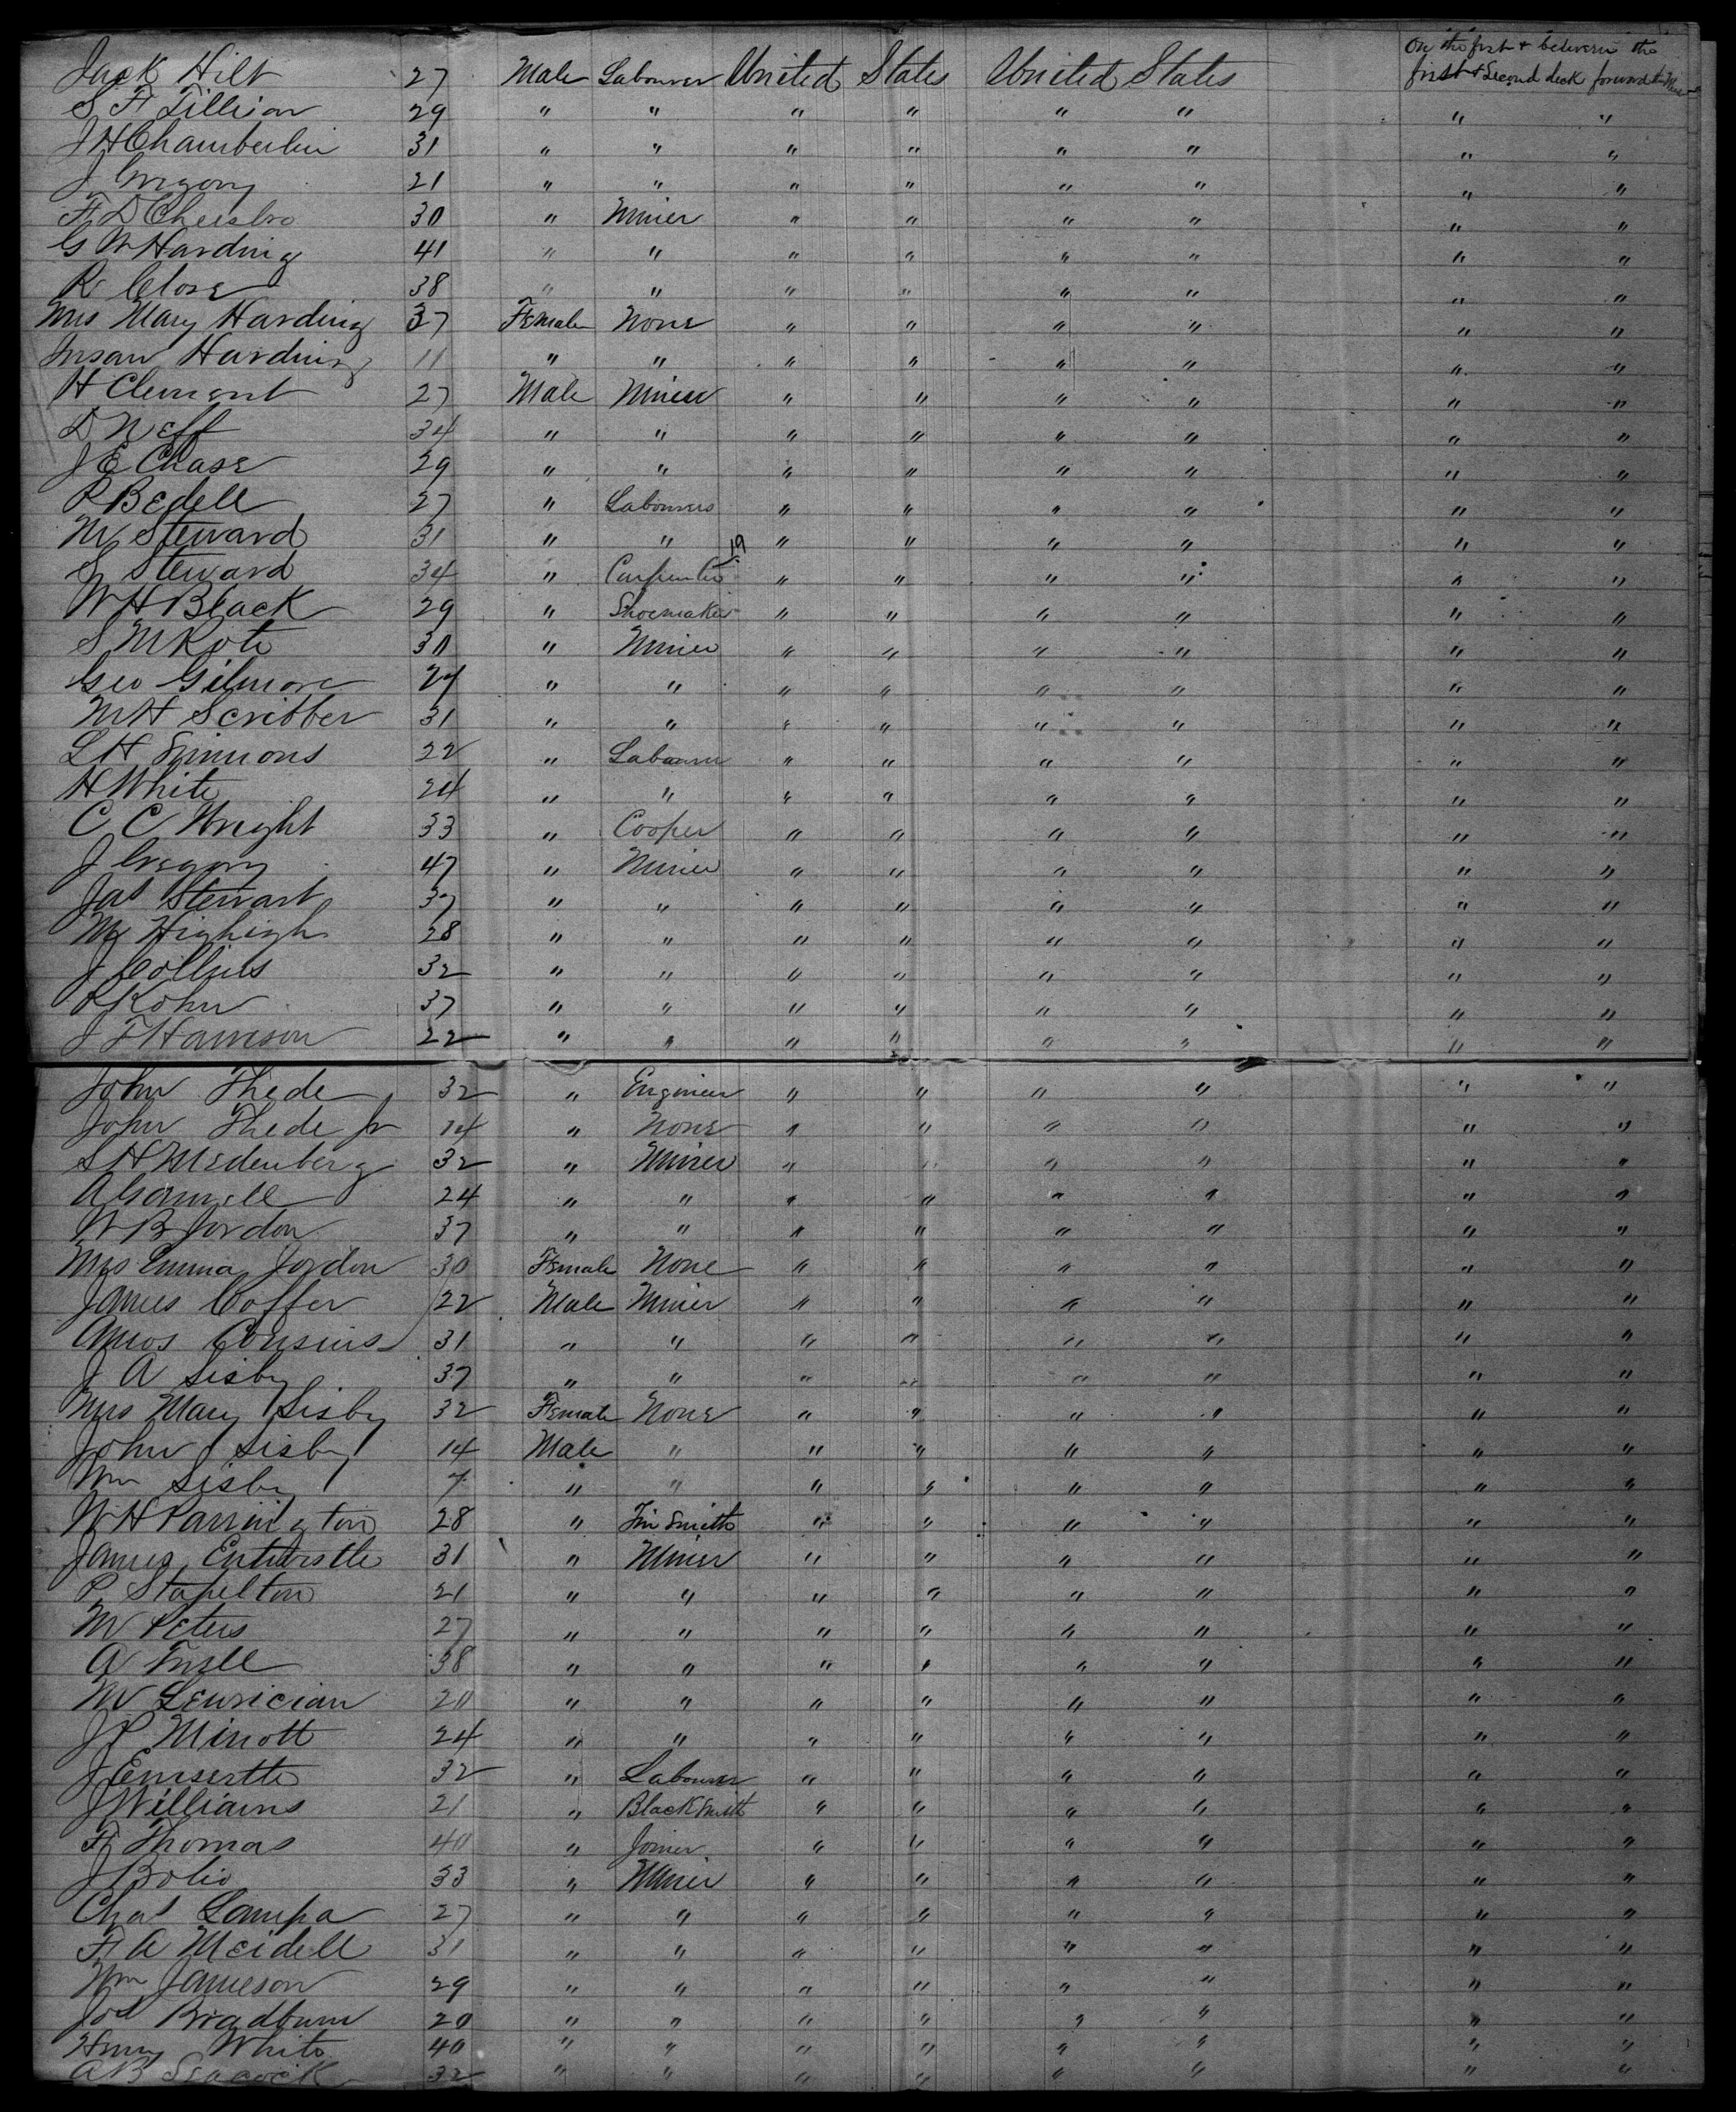 On the first + between the
Jack Hilt 27 Male Labourer United States United States first + Second deck forward
S F Tillison 29 " " " " " " " "
J H Chamberlin 31 " " " " " " " "
J Gregory 21 " " " " " " " "
F D Cheesbro 30 " Miner " " " " " "
G W Harding 41 " " " " " " " "
R Close 38 " " " " " " " "
Mrs Mary Harding 37 Female None " " " " " "
Susan Harding 11 " " " " " " " "
H Clement 27 Male Miner " " " " " "
D Neff 34 " " " " " " " "
J E Chase 29 " " " " " " " "
P Bedell 27 " Labourers " " " " " "
M Steward 31 " " 19 " " " " " "
S Steward 34 " Carpenter " " " " " "
W H Black 29 " Shoemaker " " " " " "
S M Kote 30 " Miner " " " " " "
Geo Gilmore 27 " " " " " " " "
M H Scribber 31 " " " " " " " "
L H Simmons 22 " Labourer " " " " " "
H White 24 " " " " " " " "
C C Wright 33 " Cooper " " " " " "
J Gregory 47 " Miner " " " " " "
Jas Stewart 37 " " " " " " " "
M Highigh 28 " " " " " " " "
J Collins 32 " " " " " " " "
R Kohn 37 " " " " " " " "
J F Harrison 22 " " " " " " " "
John Thede 32 " Engineer " " " " " "
John Thede Jr 14 " None " " " " " "
S H Medenberg 32 " Miner " " " " " "
A Gammell 24 " " " " " " " "
W B Jordon 37 " " " " " " " "
Mrs Emma Jordon 30 Female None " " " " " "
James Coffer 22 Male Miner " " " " " "
Amos Cousins 31 " " " " " " " "
J A Sisby 37 " " " " " " " "
Mrs Mary Sisby 32 Female None " " " " " "
John Sisby 14 Male " " " " " " "
Wm Sisby 7 " " " " " " " "
W H Parrington 28 " Tin Smith " " " " " "
James Entwistle 31 " Miner " " " " " "
P Stapelton 21 " " " " " " " "
M Peters 27 " " " " " " " "
A 38 " " " " " " " "
M 20 " " " " " " " "
J P Minott 24 " " " " " " " "
J 32 " Labourer " " " " " "
J Williams 21 " BlackSmith " " " " " "
F Thomas 40 " Joiner " " " " " "
J Bolio 33 " Miner " " " " " "
Chas Lampa 27 " " " " " " " "
F A Meidell 31 " " " " " " " "
Wm Jameson 29 " " " " " " " "
Jos Bradburn 20 " " " " " " " "
Henry White 40 " " " " " " " "
A B Seacock 32 " " " " " " " "